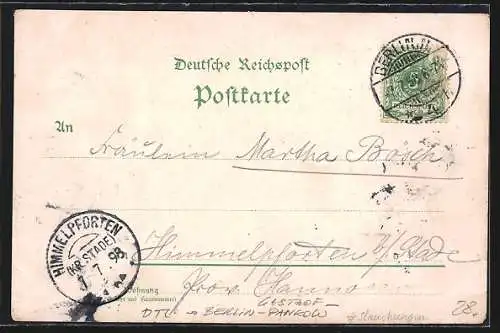 Deutsche Reichspost
Postkarte
BERLIN
An
Fräulein Martha Bosch
HIMMELPFORTEN
(KR. STADE)
7 98
Himmelpforten b/Stade
Prov. Hannover
Wohnung
GASTHOF-
DTL → BERLIN-PANKOW
28.